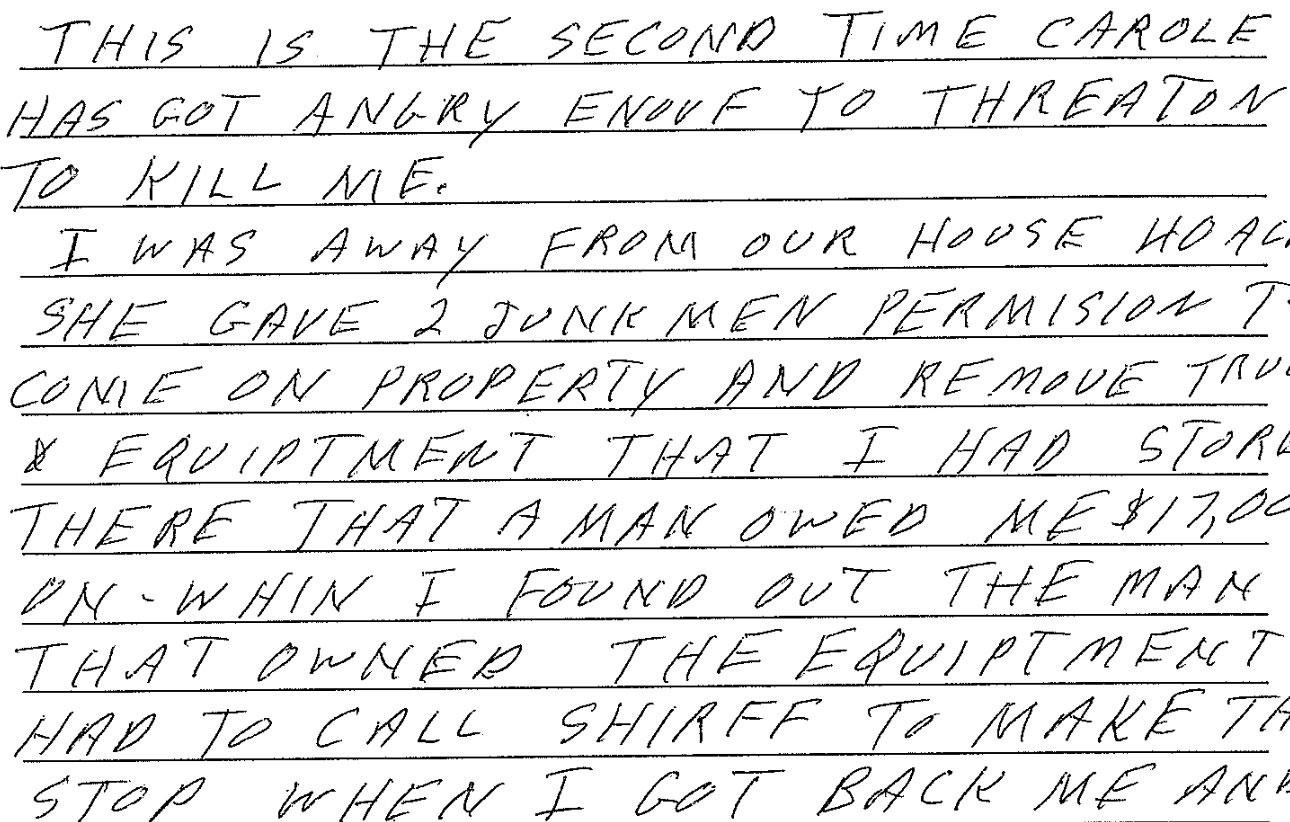 THIS IS THE SECOND TIME CAROLE
HAS GOT ANGRY ENOUF TO THREATON
TO KILL ME.
I WAS AWAY FROM OUR HOUSE
SHE GAVE 2 JUNK MEN PERMISION
COME ON PROPERTY AND REMOVE
& EQUIPTMENT THAT I HAD
THERE THAT A MAN OWED ME
ON - WHIN I FOUND OUT THE MAN
THAT OWNED THE EQUIPTMENT
HAD TO CALL SHIRFF TO MAKE
STOP WHEN I GOT BACK ME AND